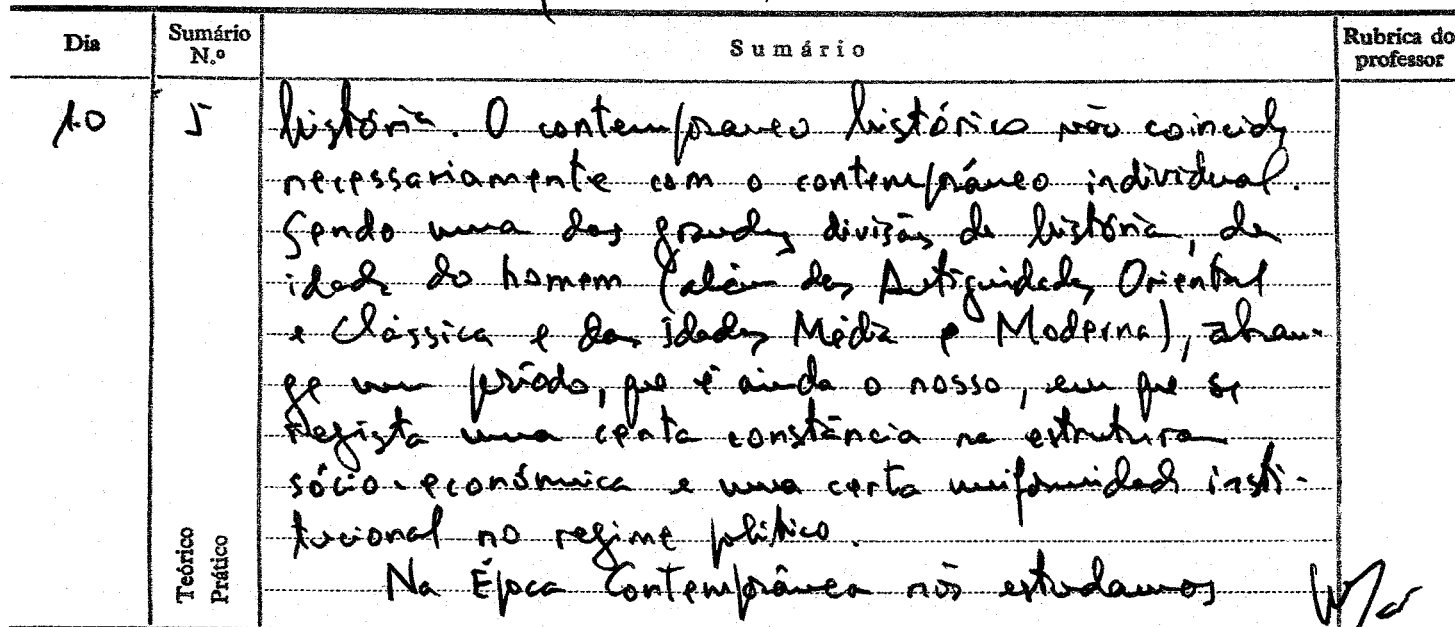 Dia Sumário N.º Sumário Rubrica do professor
10 5 história. O contemporaneo histórico não coincide
necessariamente com o contemporáneo individual.
Sendo uma das grandes divisões da história, da
idade do homem (além das Antiguidades Oriental
e Clássica e das Idades Média e Moderna), abran-
ge um período, que é ainda o nosso, em que se
regista uma certa constância na estrutura
sócio-económica e uma certa uniformidade insti-
tucional no regime político.
Teórico Prático
Na Época Contemporânea nós estudamos